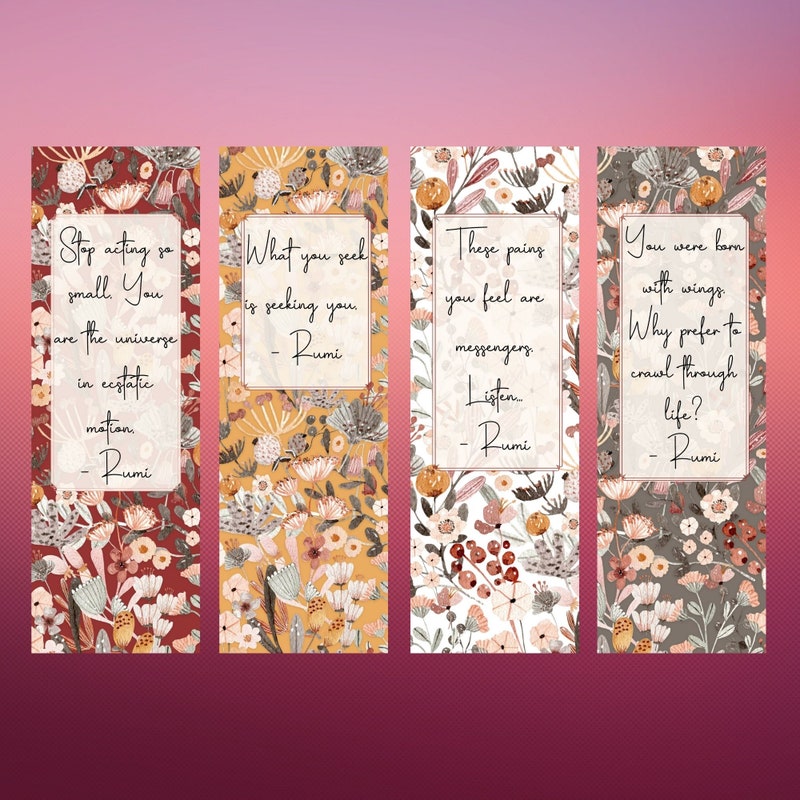 Stop acting so
small. You
are the universe
in ecstatic
motion.
- Rumi
What you seek
is seeking you.
- Rumi
These pains
you feel are
messengers.
Listen...
- Rumi
You were born
with wings.
Why prefer to
crawl through
life?
- Rumi